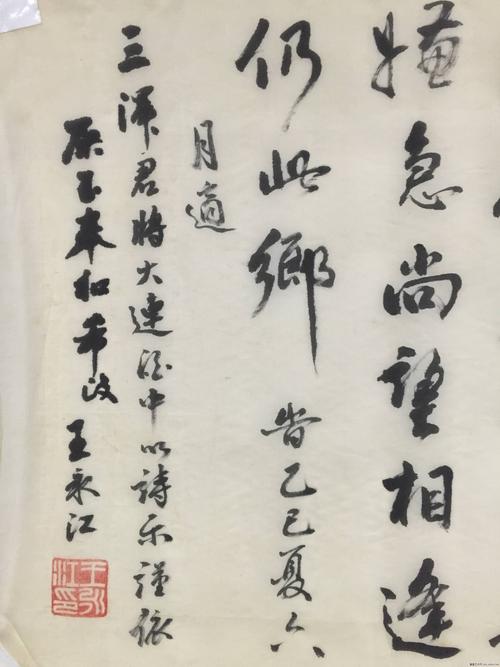 嫌急尚望相逢
仍此鄉 旹乙巳夏六
月適
三渾君時大連途中以詩示謹依
原玉奉和希政 王永江
王永江印